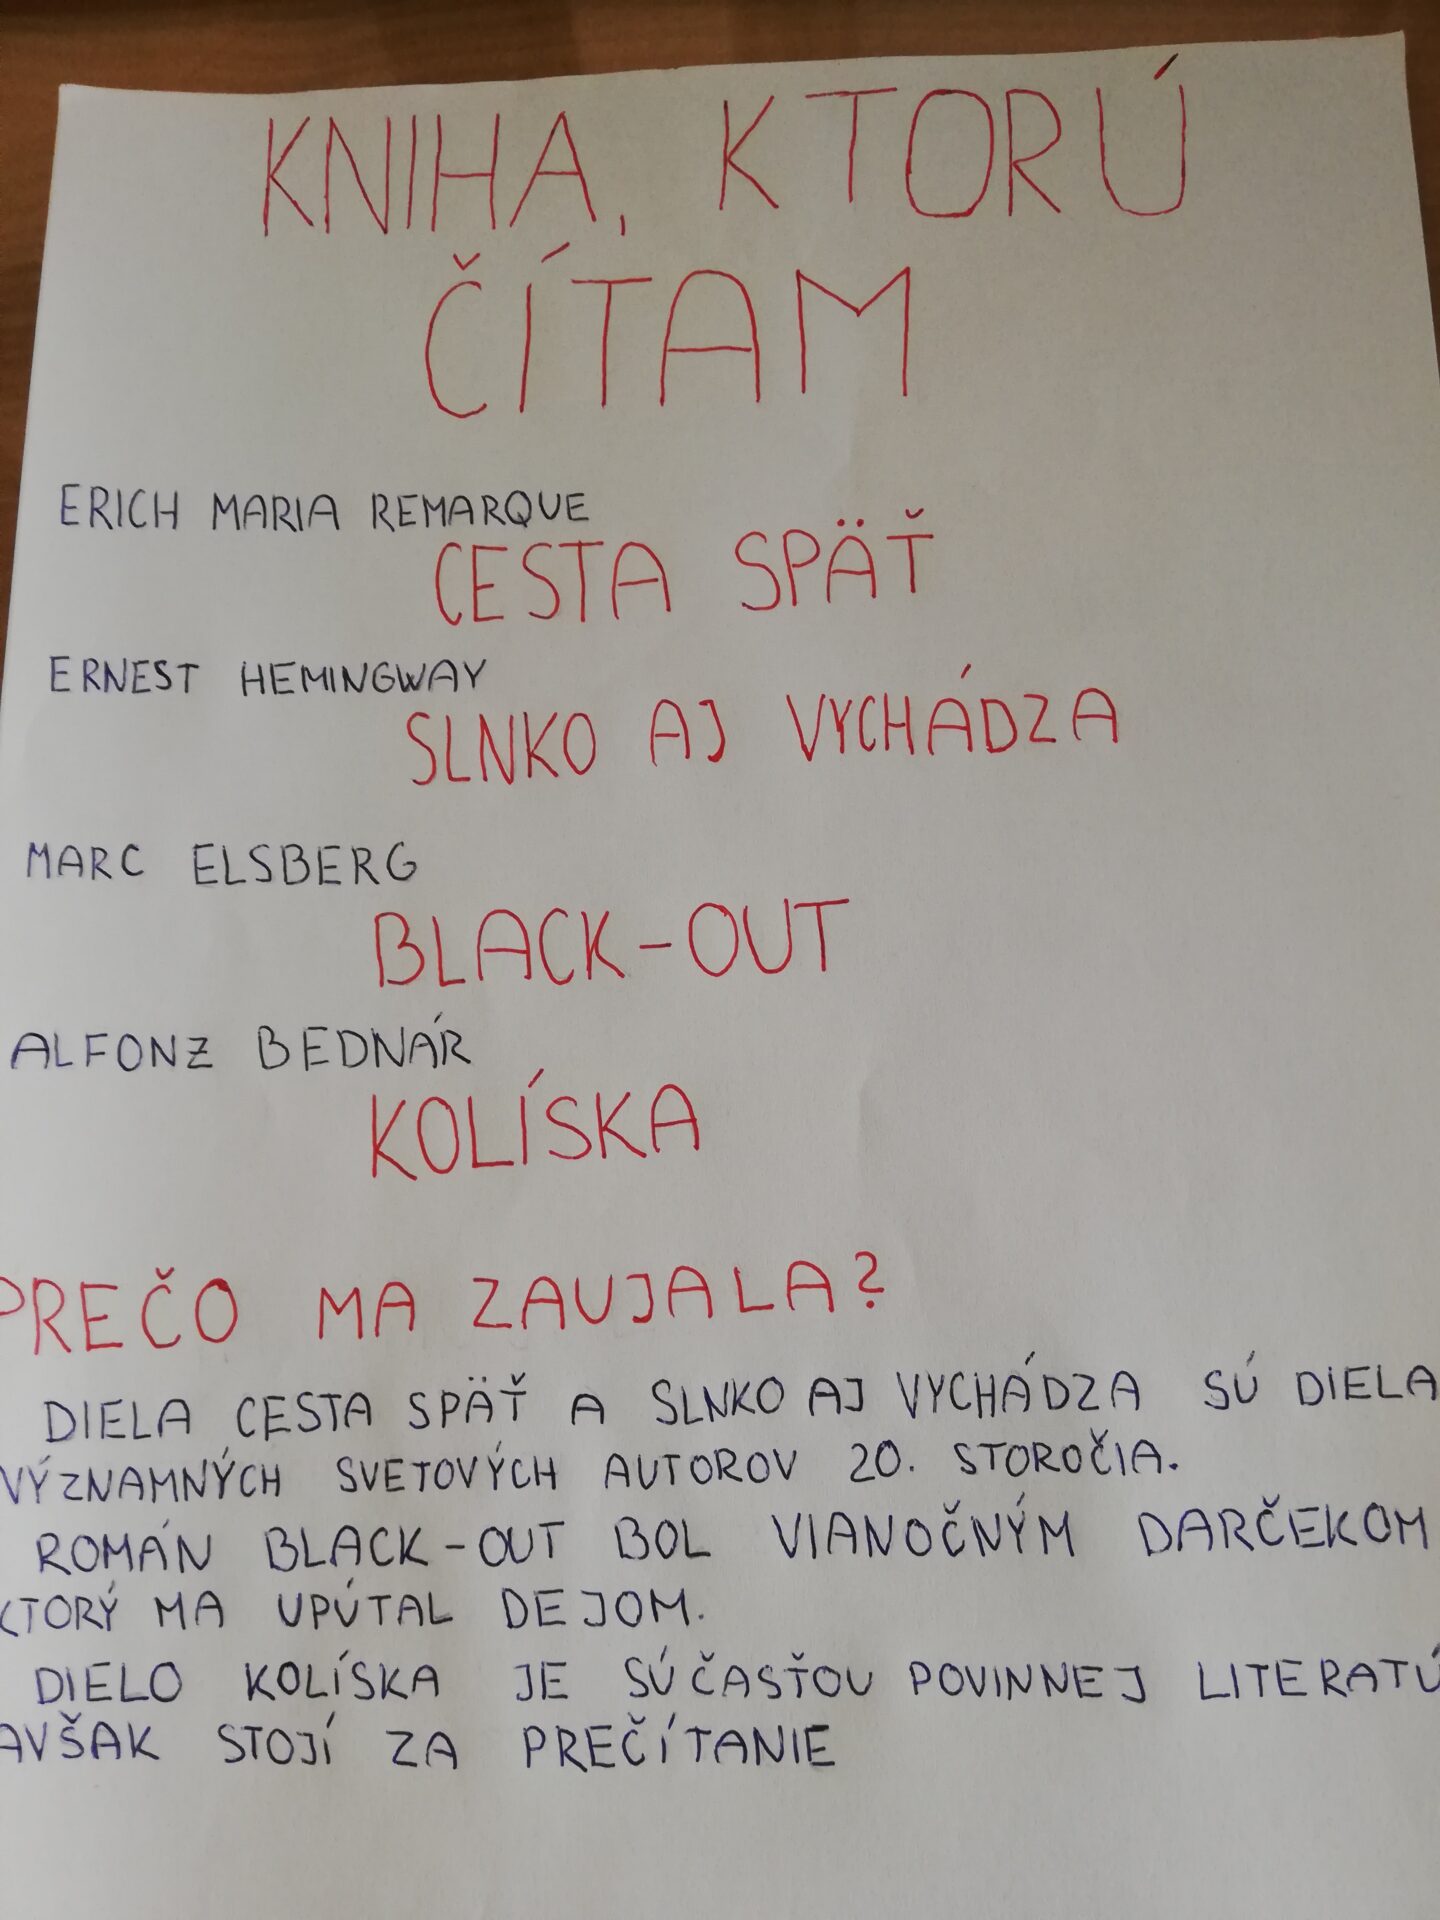 KNIHA, KTORÚ
ČÍTAM
ERICH MARIA REMARQUE
CESTA SPÄŤ
ERNEST HEMINGWAY
SLNKO AJ VYCHÁDZA
MARC ELSBERG
BLACK-OUT
ALFONZ BEDNÁR
KOLÍSKA
PREČO MA ZAUJALA?
DIELA CESTA SPÄŤ A SLNKO AJ VYCHÁDZA SÚ DIELA
VÝZNAMNÝCH SVETOVÝCH AUTOROV 20. STOROČIA.
ROMÁN BLACK-OUT BOL VIANOČNÝM DARČEKOM
KTORÝ MA UPÚTAL DEJOM.
DIELO KOLÍSKA JE SÚČASŤOU POVINNEJ LITERATÚ
AVŠAK STOJÍ ZA PREČÍTANIE